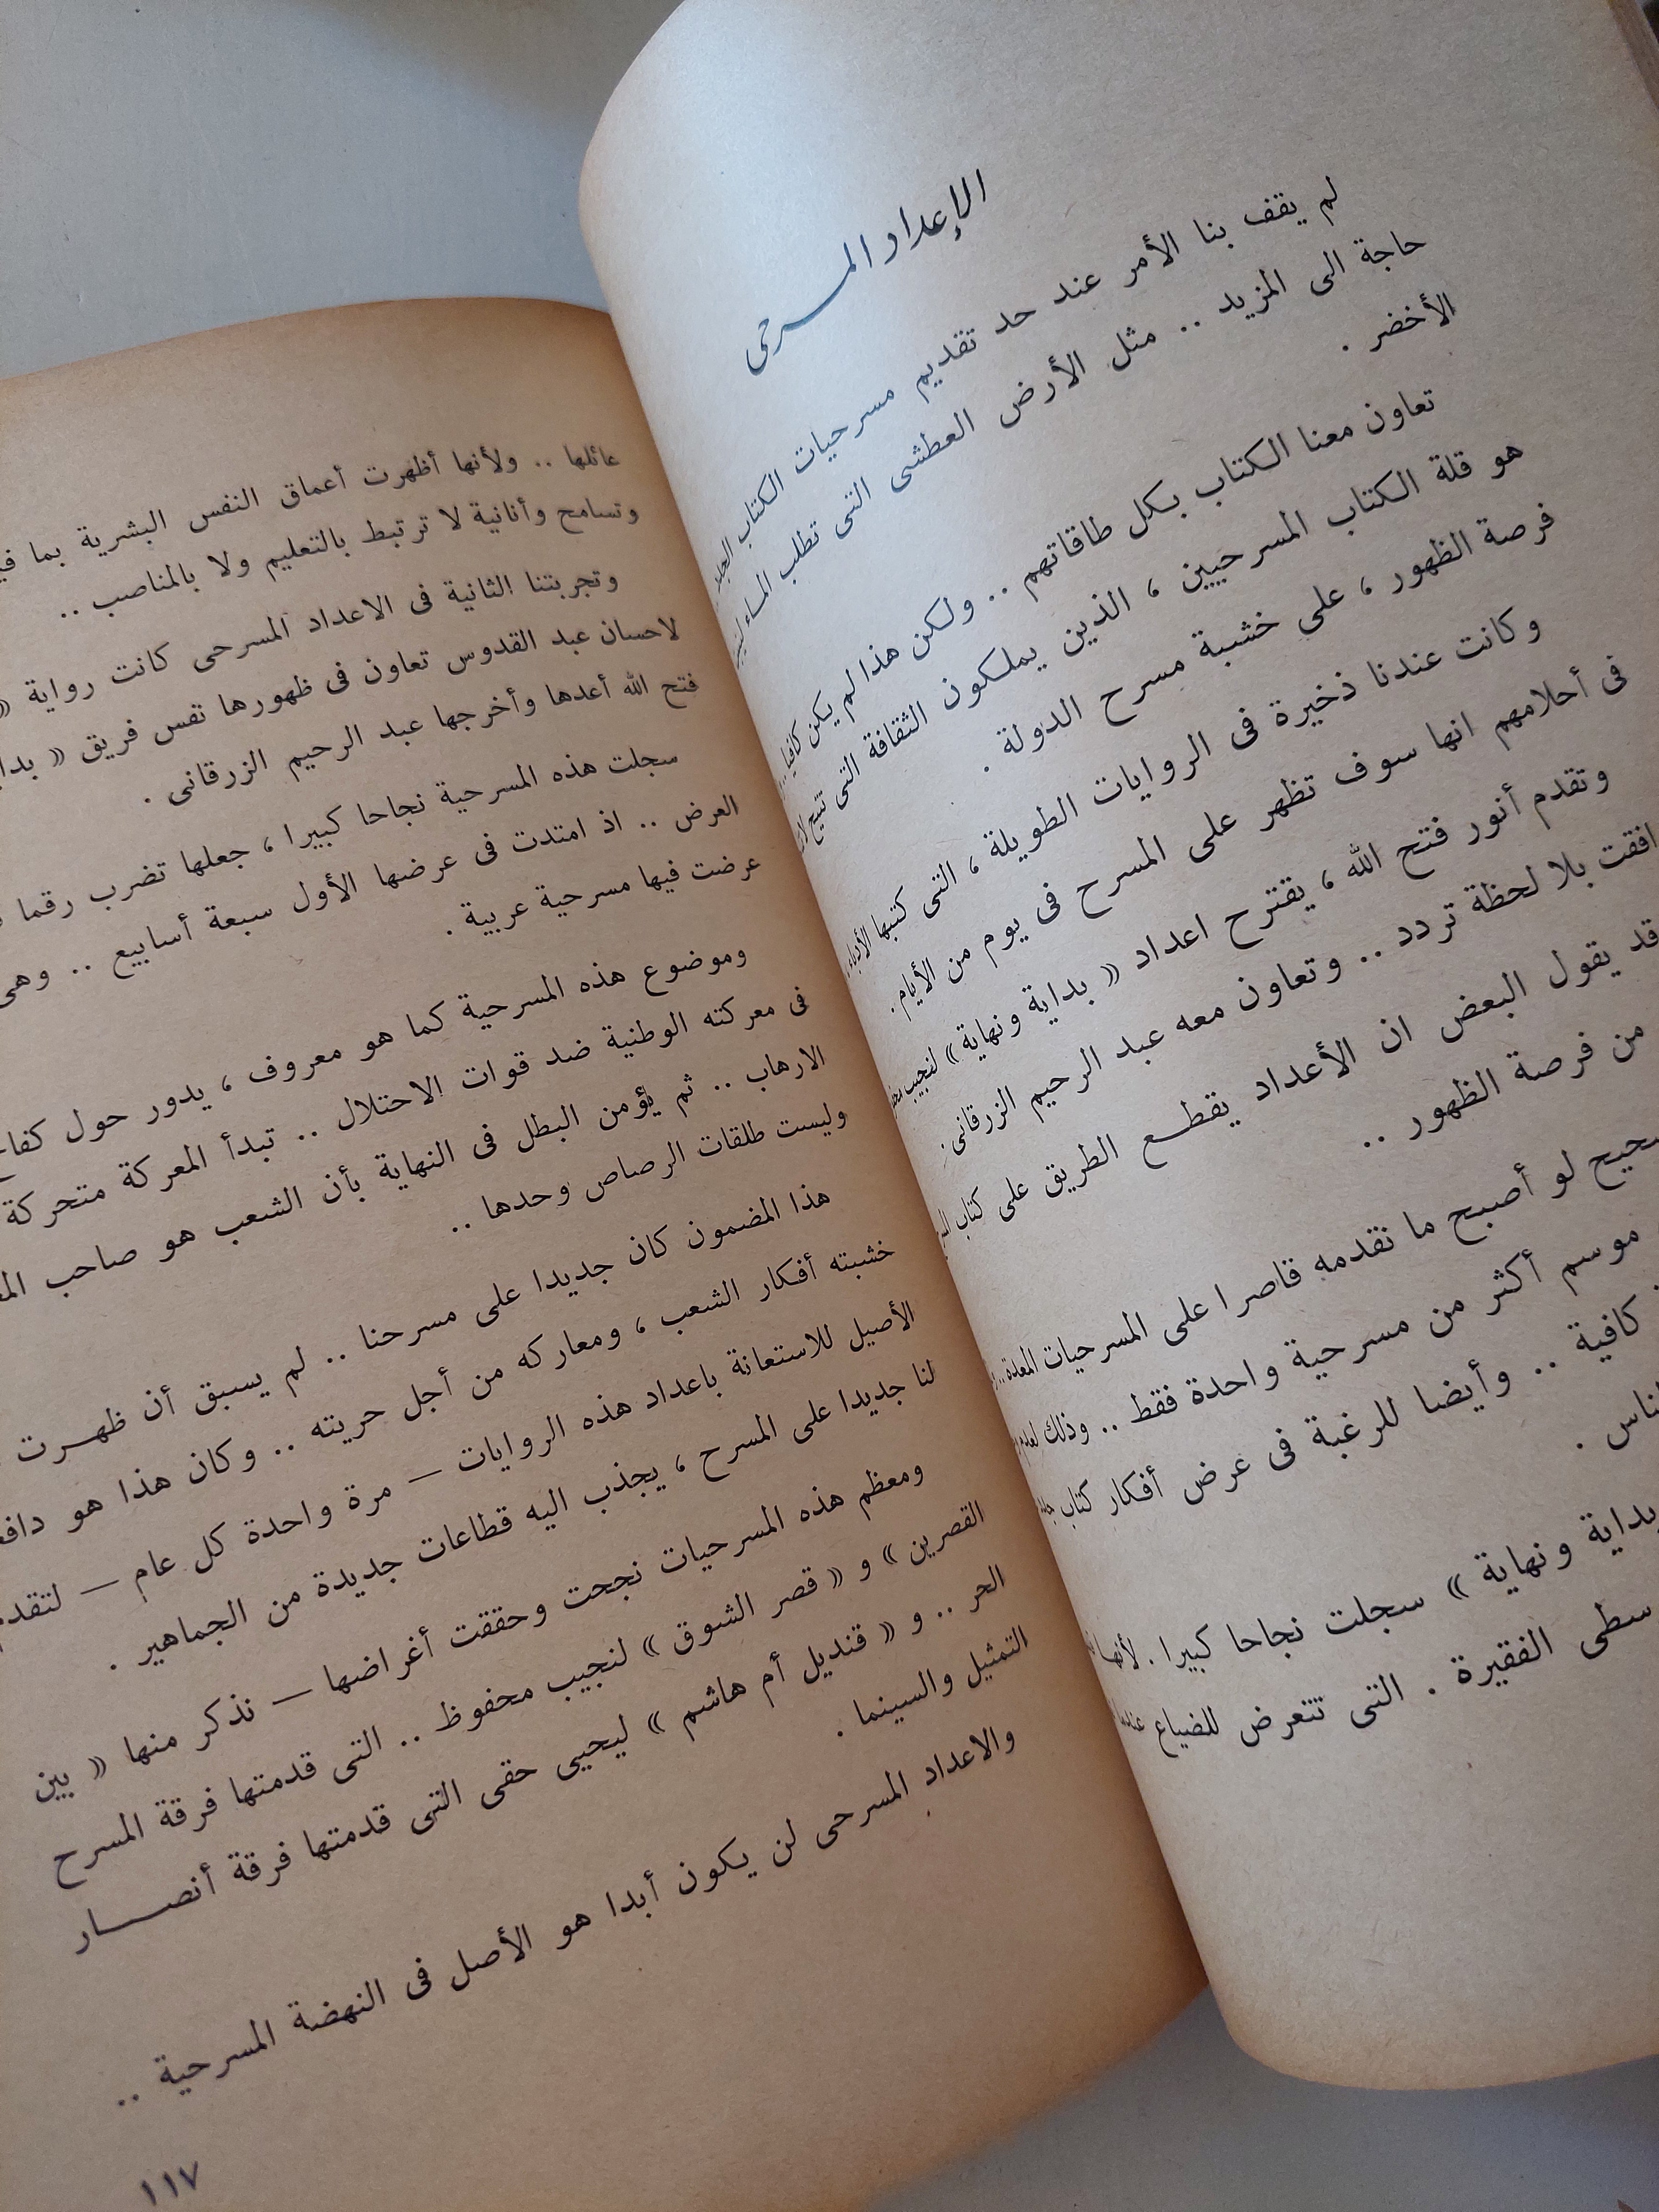 الإعداد المسرحى
لم يقف بنا الأمر عند حد تقديم مسرحيات الكتاب
حاجة الى المزيد .. مثل الأرض العطشى التى تطلب الماء
الأخضر .
تعاون معنا الكتاب بكل طاقاتهم .. ولكن هذا لم يكن كافيا ..
هو قلة الكتاب المسرحيين ، الذين يملكون الثقافة التى تتيح
فرصة الظهور ، على خشبة مسرح الدولة .
وكانت عندنا ذخيرة فى الروايات الطويلة ، التى كتبها الأدباء
فى أحلامهم انها سوف تظهر على المسرح فى يوم من الأيام .
وتقدم أنور فتح الله ، يقترح اعداد « بداية ونهاية » لنجيب
بلا لحظة تردد .. وتعاون معه عبد الرحيم الزرقانى .
قد يقول البعض ان الأعداد يقطع الطريق على كتاب
من فرصة الظهور ..
لو أصبح ما نقدمه قاصرا على المسرحيات المعدة ..
موسم أكثر من مسرحية واحدة فقط .. وذلك
كافية .. وأيضا للرغبة فى عرض أفكار كتاب
بداية ونهاية » سجلت نجاحا كبيرا . لأنها
الفقيرة . التى تتعرض للضياع
عائلها .. ولأنها أظهرت أعماق النفس البشرية بما
وتسامح وأنانية لا ترتبط بالتعليم ولا بالمناصب ..
وتجربتنا الثانية فى الاعداد المسرحى كانت رواية «
لاحسان عبد القدوس تعاون فى ظهورها نفس فريق «
فتح الله أعدها وأخرجها عبد الرحيم الزرقانى .
سجلت هذه المسرحية نجاحا كبيرا ، جعلها تضرب رقما
العرض .. اذ امتدت فى عرضها الأول سبعة أسابيع .. وهى
عرضت فيها مسرحية عربية .
وموضوع هذه المسرحية كما هو معروف ، يدور حول
فى معركته الوطنية ضد قوات الاحتلال .. تبدأ المعركة متحركة
الارهاب .. ثم يؤمن البطل فى النهاية بأن الشعب هو صاحب
وليست طلقات الرصاص وحدها ..
هذا المضمون كان جديدا على مسرحنا .. لم يسبق أن ظهرت
خشبته أفكار الشعب ، ومعاركه من أجل حريته .. وكان هذا هو
الأصيل للاستعانة باعداد هذه الروايات — مرة واحدة كل عام —
لنا جديدا على المسرح ، يجذب اليه قطاعات جديدة من الجماهير .
ومعظم هذه المسرحيات نجحت وحققت أغراضها — نذكر منها « بين
القصرين » و « قصر الشوق » لنجيب محفوظ .. التى قدمتها فرقة المسرح
الحر .. و « قنديل أم هاشم » ليحيى حقى التى قدمتها فرقة أنصار
التمثيل والسينما .
والاعداد المسرحى لن يكون أبدا هو الأصل فى النهضة المسرحية ..
١١٧